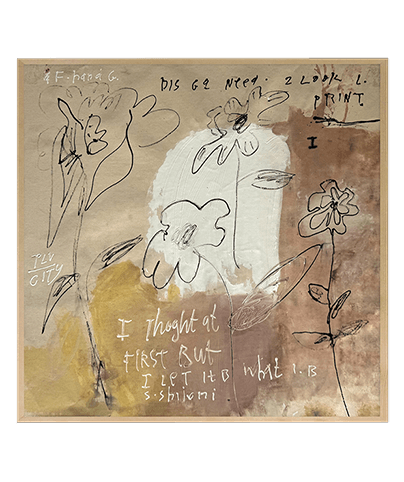 4 F-hand G.
DIS G2 NEED. 2 LOOK L.
PRINT.
I
CITY
I thoght at
FIRST BUT
I LET It B what I.B
S.Shijumi